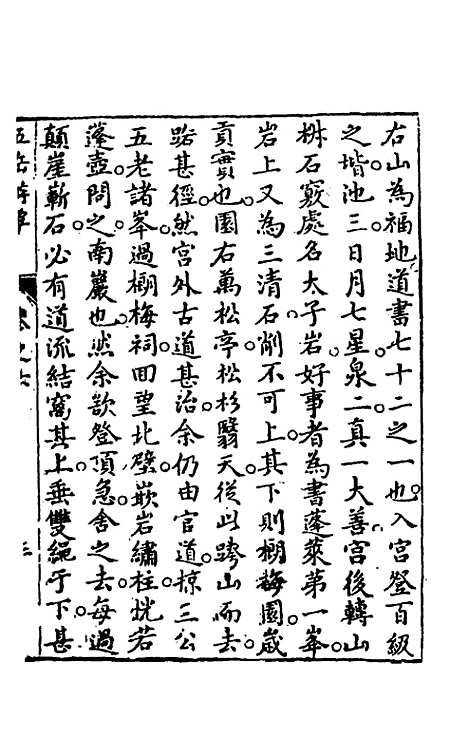 右山為福地道書七十二之一也入宮登百級
之堦池三日月七星泉二真一大善宮後轉山
㭊石竅處名太子岩好事者為書蓬萊第一峯
岩上又為三清石削不可上其下則榔梅園歲
貢實也園右萬松亭松杉翳天從此跨山而去
踞甚徑然宮外古道甚治余仍由官道掠三公
五老諸峯過榔梅祠回望北壁嵌岩繡柱恍若
蓬壺問之南巖也然余欲登頂急舍之去每過
顛崖嶄石必有道流結窩其上垂雙絙于下甚
五岳游草 卷之六 三